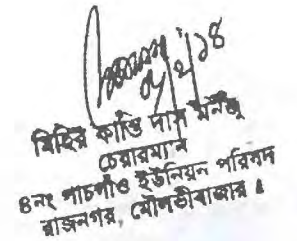 মিহির কান্তি দাস মনজু
চেয়ারম্যান
৪নং পাচগাঁও ইউনিয়ন পরিষদ
রাজনগর, মৌলভীবাজার ।